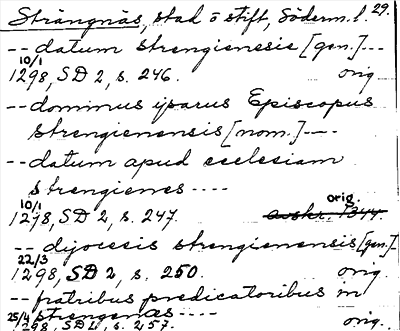 Strängnäs, stad o stift, Söderm. l. 29.
-- datum strengienesie [gen.]---
10/1
1298, SD 2, s. 246. orig.
-- dominus ysarus Episcopus
strengienensis [nom.]----
-- datum apud ecclesiam
strengienes ----
10/1 orig.
1298, SD 2, s. 247. avskr. 1344.
-- dyocesis strengienensis [gen.]
22/3
1298, SD 2, s. 250. orig.
-- fratribus predicatoribus in
25/4 strengenæs ----
1298, SD 2, s. 257. orig.